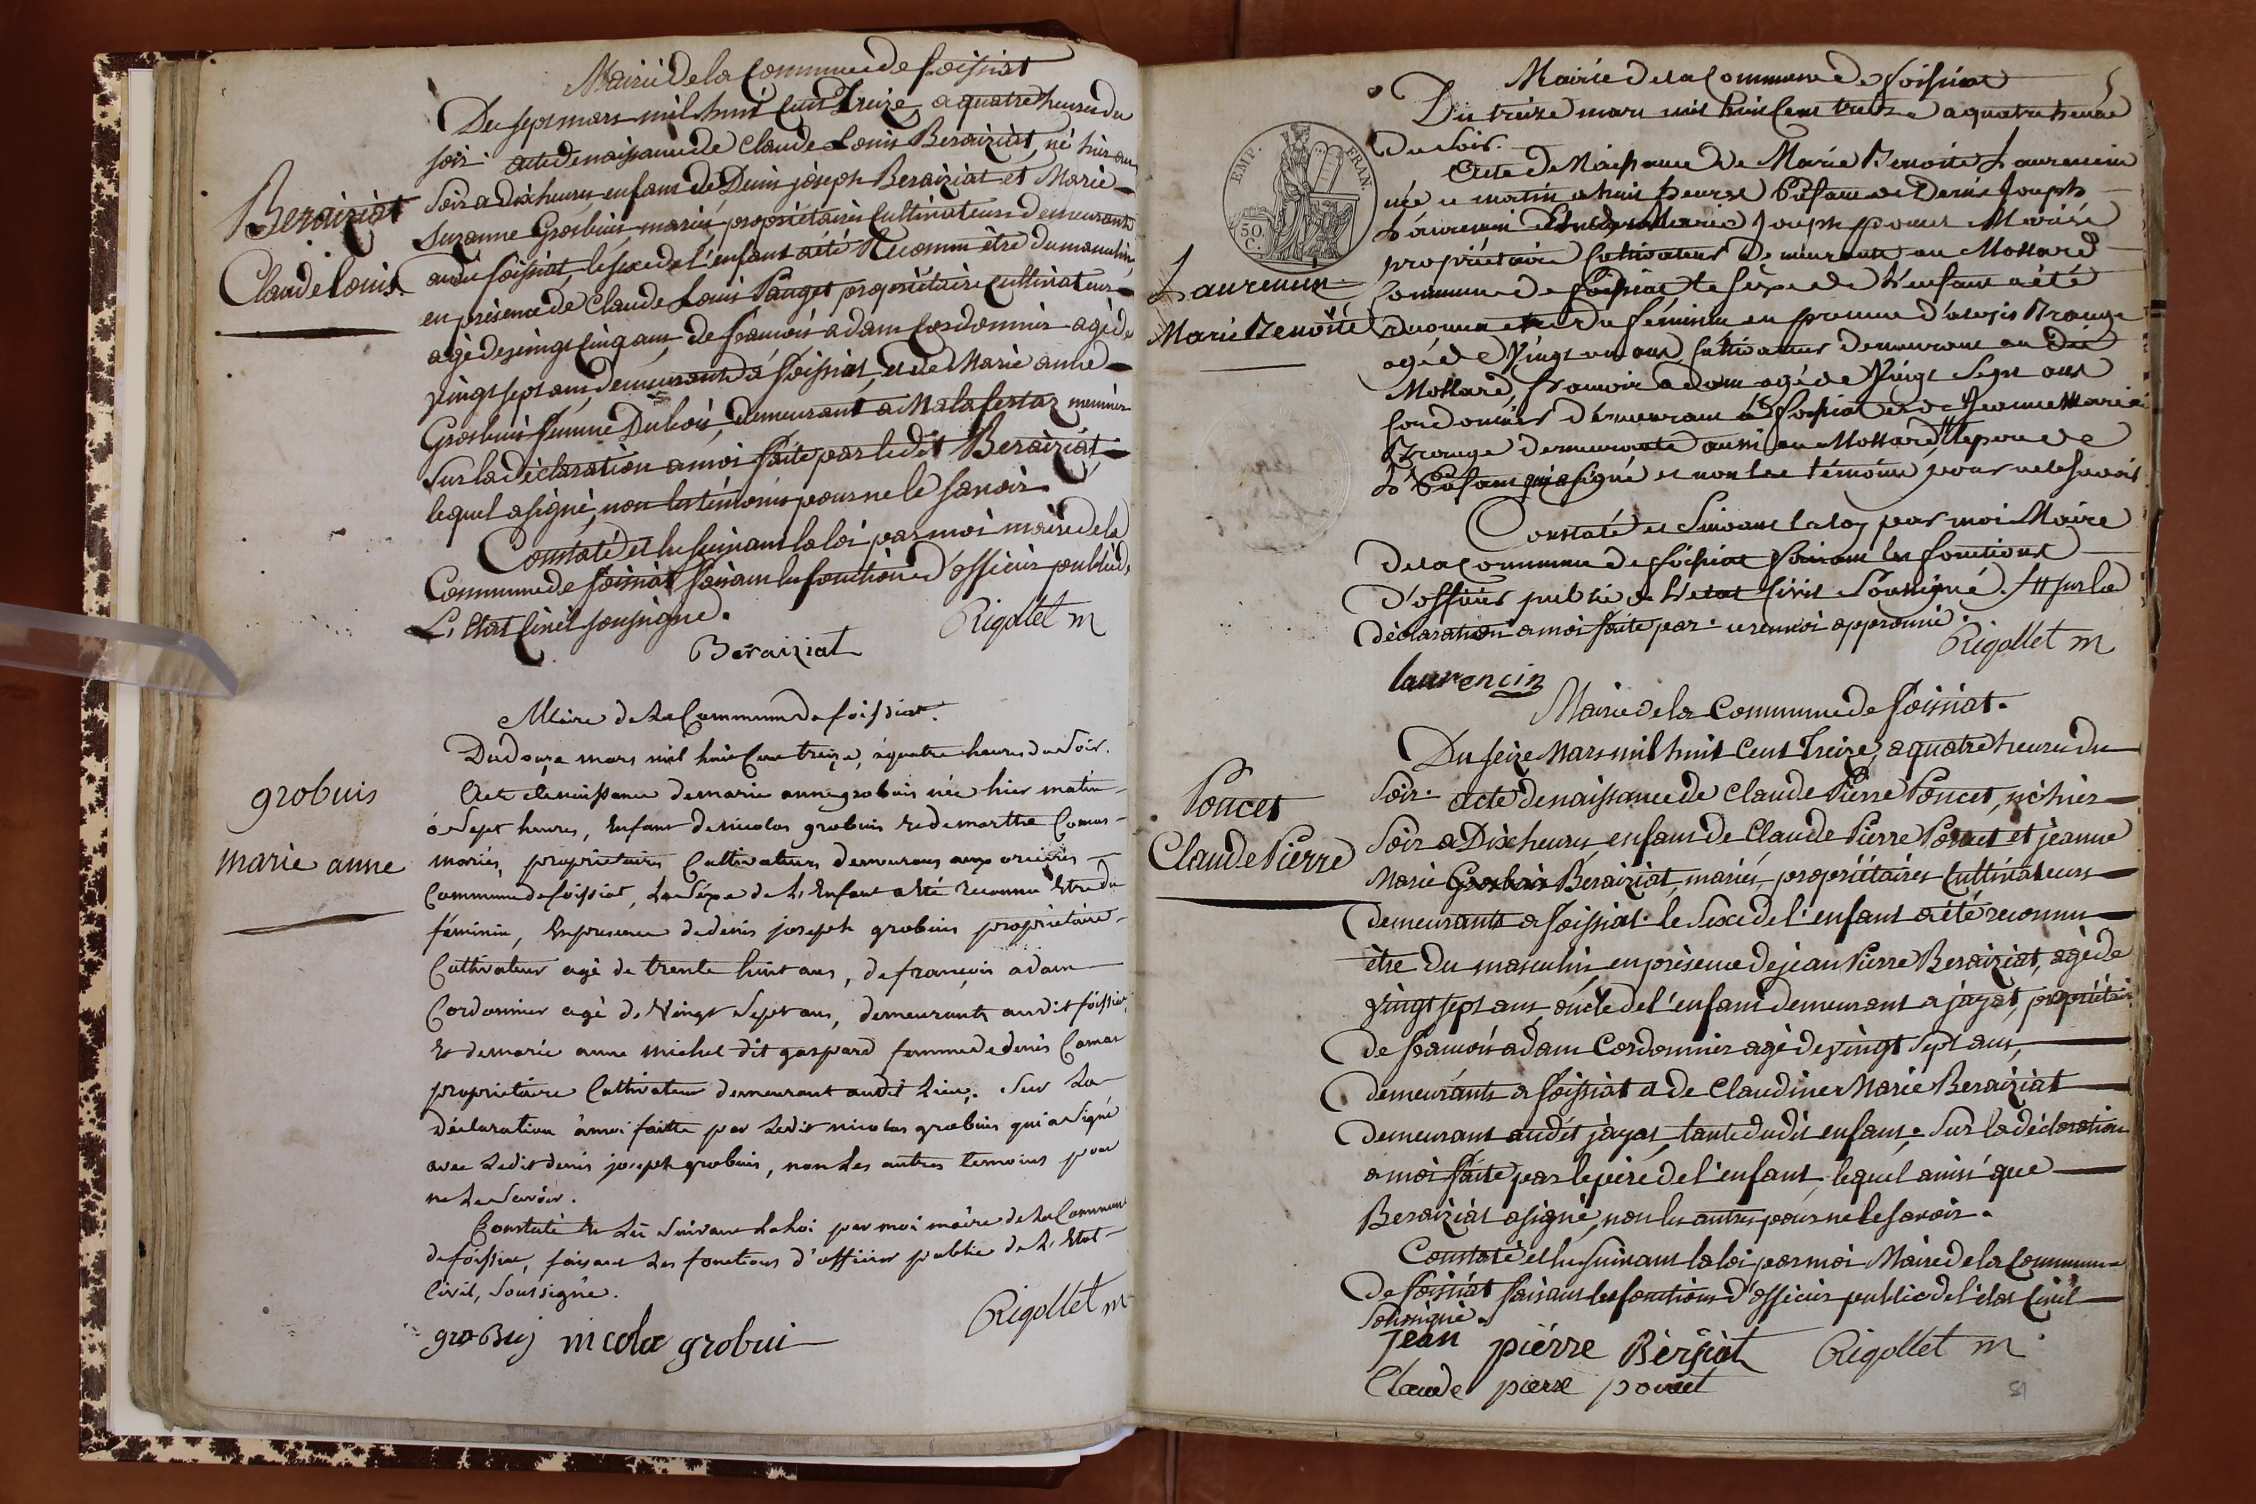 Mairie de la Commune de foissiat
Du sept mars mil huit Cent Treize, a quatre heures du
soir. acte de naissance de Claude Louis Beraiziat, né hier au
Soir a dix heures, enfant de Denis joseph Beraiziat et Marie
Suzanne Grosbuis mariés propriétaires Cultivateurs demeurants
audit foissiat, le sexe de l'enfant a été Reconnu être du masculin,
en présence de Claude Louis Pauget propriétaire cultivateur
agé de vingt cinq ans, de francois adam Cordonnier agé de
vingt sept ans demeurants a foissiat, et de Marie anne
Grosbuis femme Dubois, demeurant a Malafertaz meunier
Sur la déclaration a moi faite par le dit Beraiziat
lequel a signé, non les témoins pour ne le savoir.
Constaté et lu suivant la loi par moi maire de la
Commune de foissiat faisant les fonctions d'officier public de
L'Etat Civil soussigné.
Beraiziat
Rigollet m
Beraiziat
Claude Louis.
Maire de La Commune de foissiat.
Du douze mars mil huit Cent treize, à quatre heures du Soir.
Acte de naissance de marie anne grobuis née hier matin
à Sept heures, Enfant de nicolas grobuis et de marthe Comas
mariés, propriétaires Cultivateurs demeurans aux orcières
Commune de foissiat, Le Séxe de L'Enfant a été reconnu Etre du
féminin, En presence de denis joseph grobuis propriétaire
Cultivateur agé de trente huit ans, de françois adam
Cordonnier agé de Vingt Sept ans, demeurants audit foissiat,
Et de marie anne michel dit gaspard femme de denis Comas
propriétaire Cultivateur demeurant audit Lieu. Sur La
déclaration à moi faitte par Ledit nicolas grobuis qui a Signé
avec Ledit denis joseph grobuis, non Les autres temoins pour
ne Le Savoir.
Constaté Et Lu Suivant La Loi par moi maire de La Commune
de foissiat, faisant Les fonctions d'officier public de L'Etat
Civil, Soussigné.
groBuij nicola grobui
Rigollet m
grobuis
marie anne
Mairie de la Commune de foissiat
Du treize mars mil huit Cent treize a quatre heures
du Soir.
Acte de Naissance de Marie Benoite Laurencin
née ce matin a huit heures Enfant de Denis Joseph
Laurencin et de Marie Joseph poncet Mariés
propriétaires Cultivateurs demeurants au Mollard
Commune de foissiat le sexe de L'enfant a été
reconnu etre du féminin en presence d'alexis Brange
agé de Vingt un ans Cultivateur demeurant au dit
Mollard, francois adam agé de Vingt Sept ans
Cordonnier demeurant à foissiat et de Jeanne Marie
Brange demeurante aussi au Mollard, # le pere de
L'Enfant qui a signé et non les temoins pour ne le savoir
Constaté et Suivant la loy par moi Maire
de la Commune de foissiat faisant les fonctions
d'officier public de L'état Civil Soussigné. # sur la
déclaration a moi faite par. ce renvoi approuvé.
Rigollet m
laurencin
EMP. FRAN.
50 C.
Laurencin
Marie Benoite
Mairie de la Commune de foissiat.
Du seize Mars mil huit Cent Treize, a quatre heures du
Soir. acte de naissance de Claude Pierre Poncet, né hier
Soir a Dix heures, enfant de Claude Pierre Poncet et jeanne
Marie Grosbuis Beraiziat, mariés, propriétaires Cultivateurs
demeurants a foissiat. le Sexe de l'enfant a été reconnu
être du masculin, en présence de jean Pierre Beraiziat, agé de
vingt sept ans, oncle de l'enfant demeurant a jayat, propriétaire
de francois adam Cordonnier agé de vingt Sept ans,
demeurants a foissiat et de Claudine Marie Beraiziat
demeurant au dit jayat, tante dudit enfant. Sur la déclaration
a moi faite par le père de l'enfant, lequel ainsi que
Beraiziat a signé, non les autres pour ne le savoir.
Constaté et lu suivant la loi par moi Maire de la Commune
de foissiat faisant les fonctions d'officier public de l'état Civil
Soussigné.
Jean pièrre Bérjiat
Rigollet m
Claude pierre poncet
Poncet
Claude Pierre
81